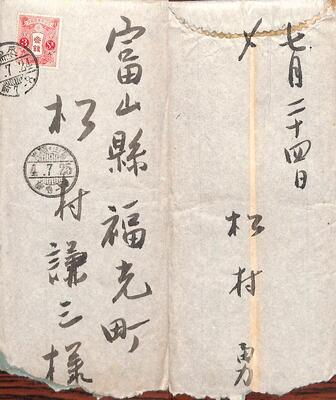 富山縣福光町
松村謙三様
4.7.25
七月二十四日
〆
松村勇